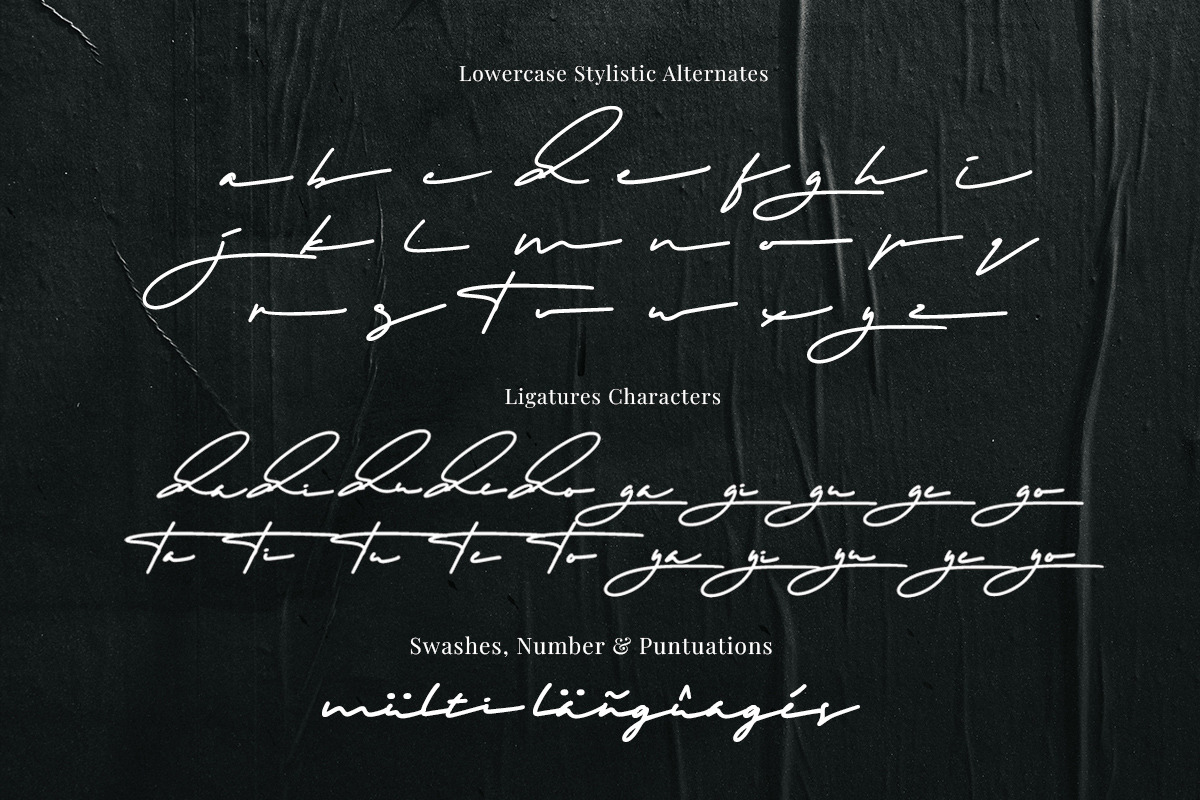 Lowercase Stylistic Alternates
a b c d e f g h i
j k l m n o p q
r s t v w x y z
Ligatures Characters
da di du de do ga gi gu ge go
ta ti tu te to ya yi yu ye yo
Swashes, Number & Puntuations
mülti läñgûagés